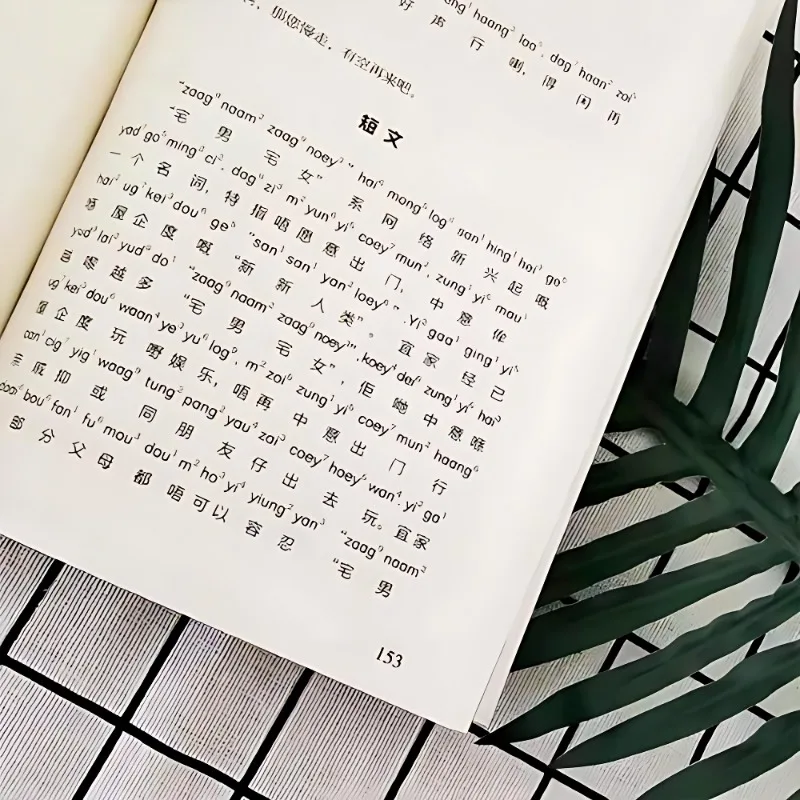 haang² lao⁰, dag⁷ haan² zoi⁶
好 声 行 喇, 得 闲 再
那您慢走, 有空再来吧。
短文
"zaag⁹ naam² zaag⁹ noey³" hai⁶ mong⁵ log⁹ san¹ hing¹ hei³ ge⁶
“宅 男 宅 女” 系 网 络 新 兴 起 嘅
yad⁷ go⁶ ming² ci², dag⁹ zi³ m² yun⁶ yi⁶ coey⁷ mun², zung¹ yi⁶ mau¹
一 个 名 词, 特 指 唔 愿 意 出 门, 中 意
hai³ ug⁷ kei³ dou⁶ ge⁶ "san¹ san¹ yan² loey⁶". Yi² gaa¹ ging¹ yi⁵
屋 企 度 嘅 “新 新 人 类”。 宜 家 经 已
yud⁹ lai² yud⁹ do¹ "zaag⁹ naam² zaag⁹ noey³", koey⁵ dei⁶ zung¹ yi⁶ hai³
嚟 越 多 “宅 男 宅 女”, 佢 哋 中 意 喺
ug⁷ kei³ dou⁶ waan⁴ ye³ yu⁶ log⁹, m² zoi⁶ zung¹ yi⁶ coey⁷ mun² haang⁶
屋 企 度 玩 嘢 娱 乐, 唔 再 中 意 出 门 行
cig⁷ yig⁷ waag⁹ tung² pang² yau⁴ zai³ coey⁷ hoey⁶ wan⁴. yi² ga¹
戚 抑 或 同 朋 友 仔 出 去 玩。 宜 家
bou⁶ fan⁶ fu⁶ mou³ dou¹ m² ho³ yi⁴ yiung² yan³ "zaag⁹ naam²
部 分 父 母 都 唔 可 以 容 忍 “宅 男
153